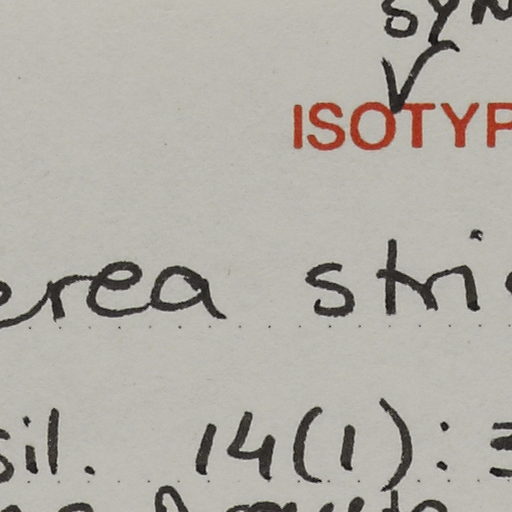 syn
ISOTYP
erea stri
sil. 14(1): 3